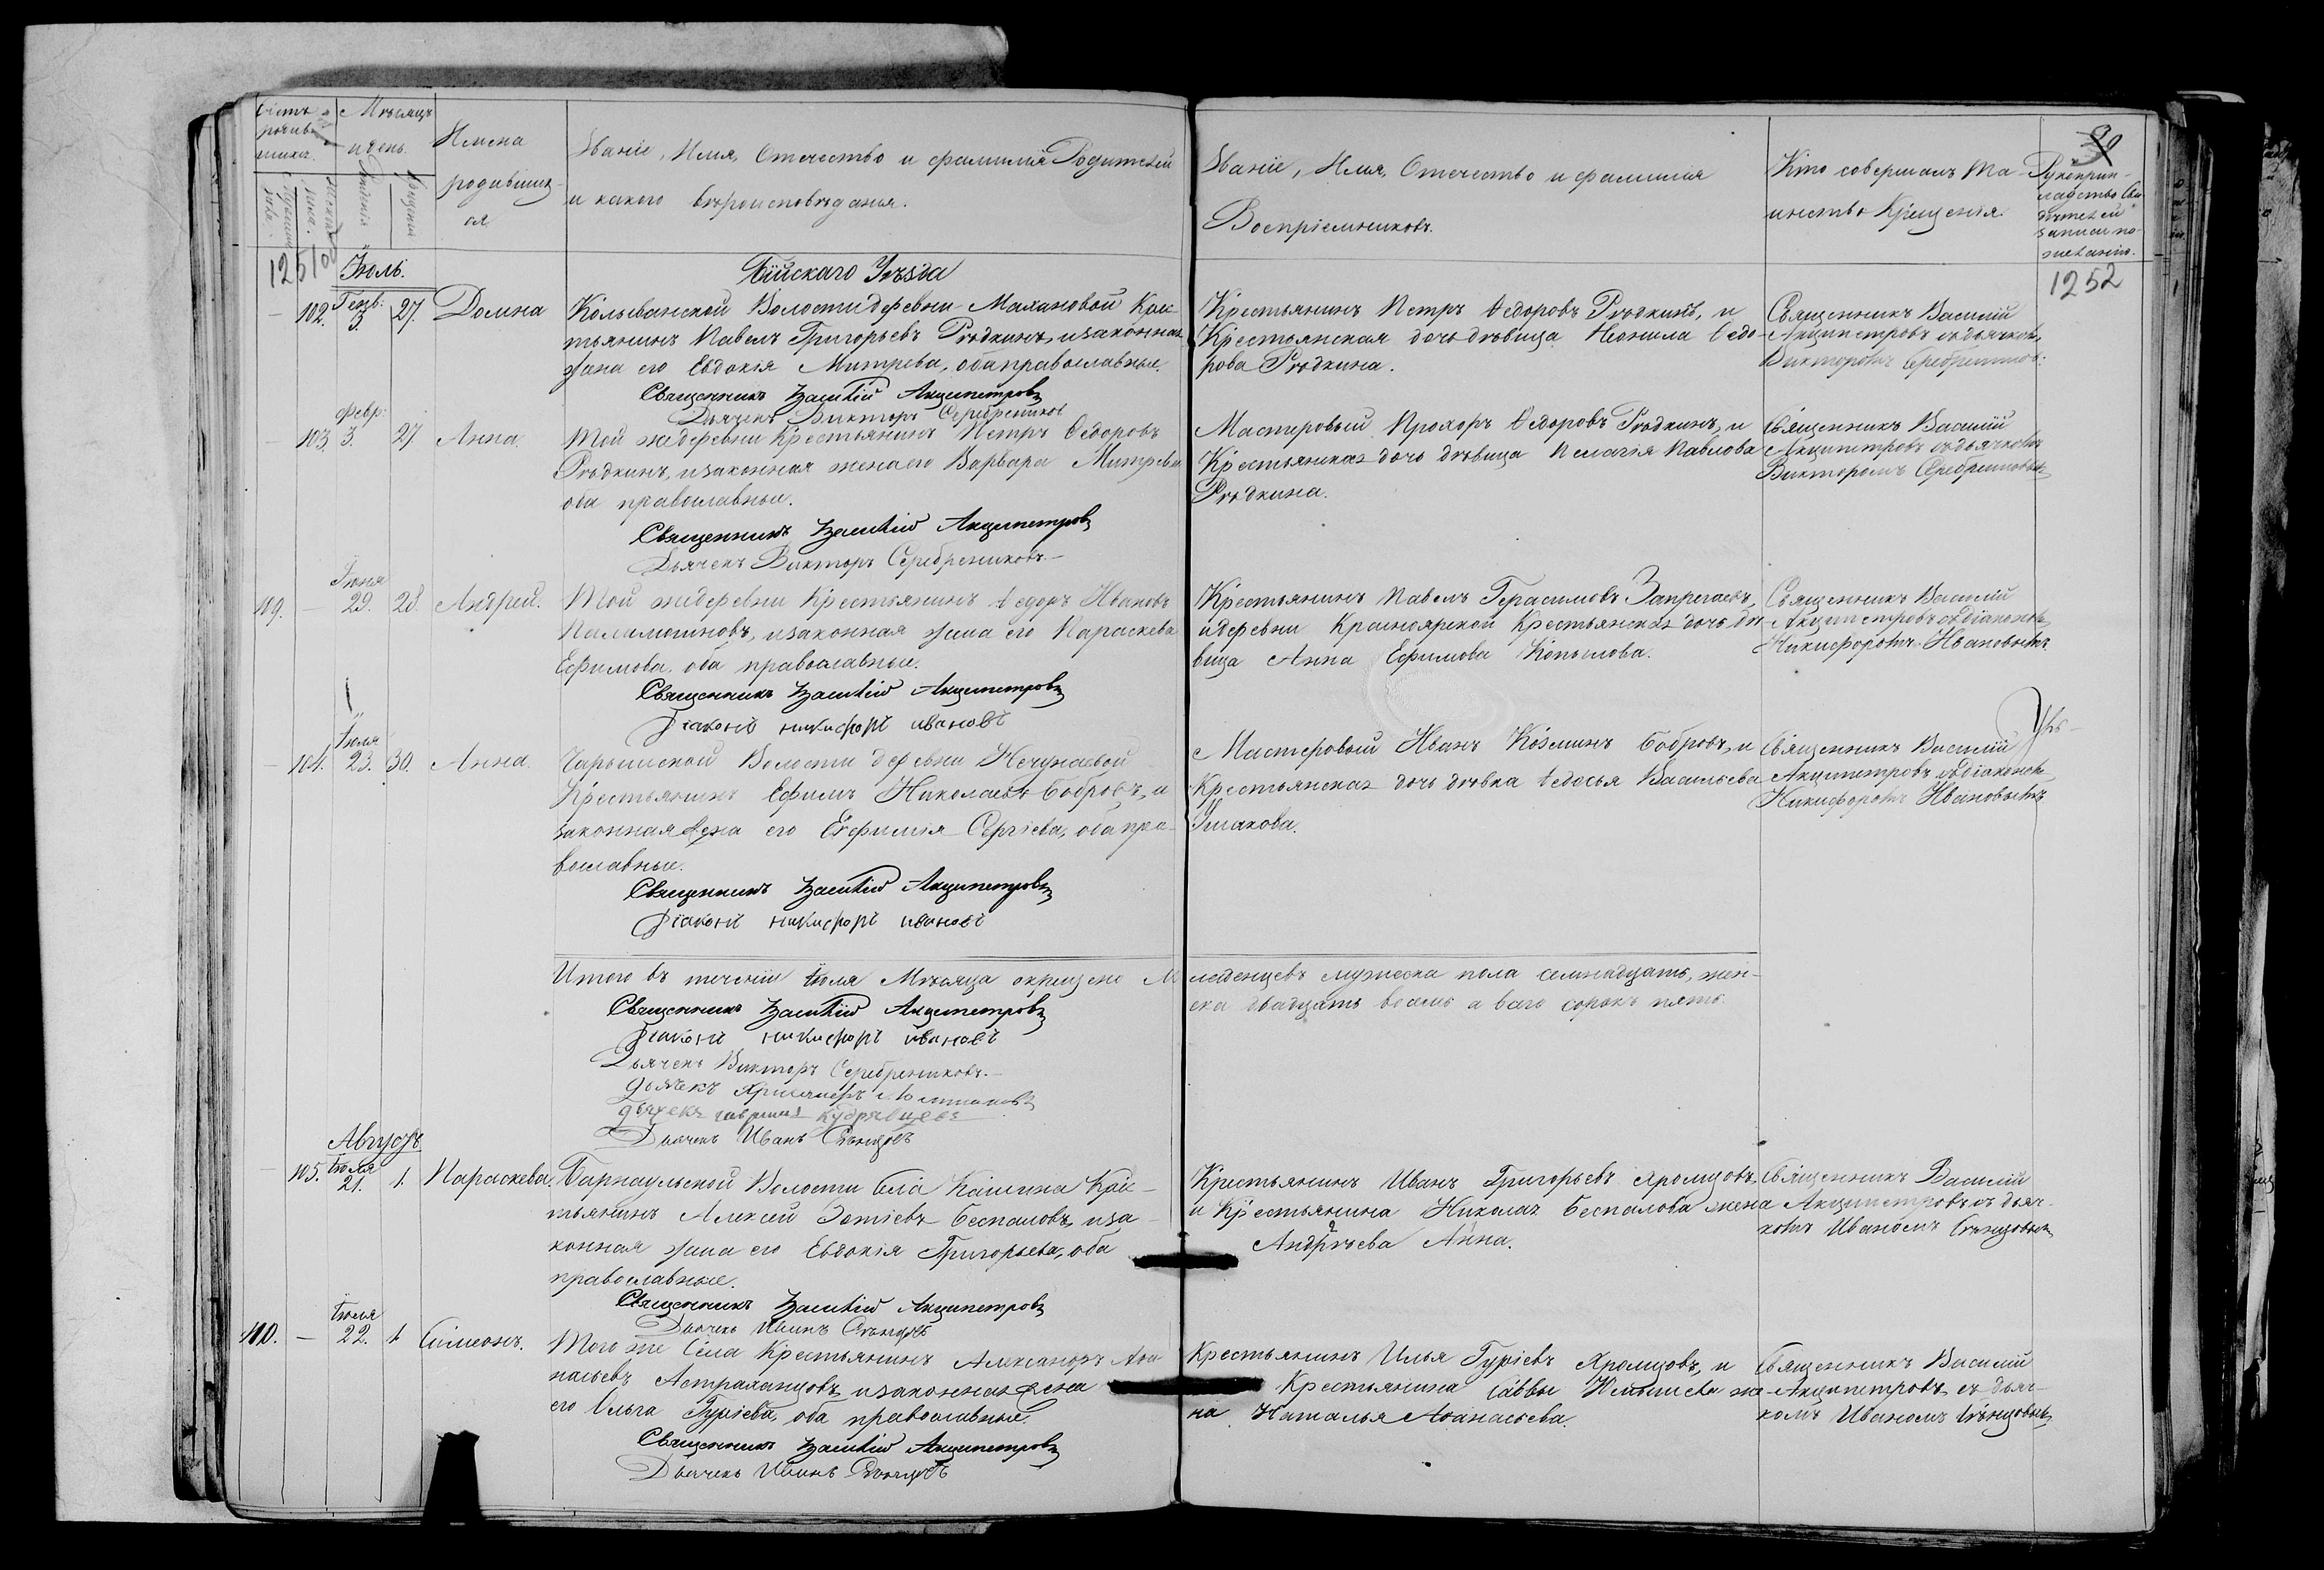 Счетъ родив-
шихъ.
Мѣсяцъ
и день.
Рожденія
Крещенія
Имена
родивших-
ся
Званіе, Имя, Отчество и фамилія Родителей
и какого вѣроисповѣданія.
Званіе, Имя, Отчество и фамилія
Воспріемниковъ.
Кто совершалъ Та-
инство Крещенія.
Рукоприк-
ладство Сви-
дѣтелей
записи по
желанію.
1251об
1252
Іюль.
Бійскаго Уѣзда
102. Генв: 3. 27. Домна
Колыванской Волости деревни Махановой Крес-
тьянинъ Павелъ Григорьевъ Рѣдкинъ, и законная
жена его Евдокія Митрева, оба православные.
Священникъ Василій Акципетровъ
Дьячекъ Викторъ Серебрениковъ
Крестьянинъ Петръ Ѳедоровъ Рѣдкинъ, и
Крестьянская дочь дѣвица Неонила Ѳедо-
рова Рѣдкина.
Священникъ Василій
Акципетровъ съ дьячкомъ
Викторомъ Серебреников:
103. Февр: 3. 27 Анна
Той же деревни Крестьянинъ Петръ Ѳедоровъ
Рѣдкинъ, и законная жена его Варвара Митрева
оба православные.
Священникъ Василій Акципетровъ
Дьячекъ Викторъ Серебрениковъ.
Мастеровый Прохоръ Ѳедоровъ Рѣдкинъ, и
Крестьянская дочь дѣвица Пелагія Павлова
Рѣдкина.
Священникъ Василій
Акципетровъ съ дьячкомъ
Викторомъ Серебрениковымъ
109. — Іюня 29. 28. Андрей.
Той же деревни Крестьянинъ Ѳедоръ Ивановъ
Паламошновъ, и законная жена его Параскева
Ефимова, оба православные.
Священникъ Василій Акципетровъ
Діаконъ никифоръ ивановъ
Крестьянинъ Павелъ Герасимовъ Запрегаевъ,
и деревни Красноярской Крестьянская дочь дѣ-
вица Анна Ефимова Копылова.
Священникъ Василій
Акципетровъ съ діакономъ
Никифоромъ Ивановымъ
— 104. Іюля 23. 30. Анна.
Чарышской Волости деревни Нечунаевой
Крестьянинъ Ефимъ Николаевъ Бобровъ, и
законная жена его Евфимія Сергіева, оба пра-
вославные.
Священникъ Василій Акципетровъ
Діаконъ никифоръ ивановъ
Мастеровый Иванъ Козминъ Бобровъ, и
Крестьянская дочь дѣвка Ѳедосья Васильева
Ушакова.
Священникъ Василій
Акципетровъ съ діакономъ
Никифоромъ Ивановымъ
Итого въ теченіи Іюля Мѣсяца окрещено Мла-
денцевъ мужеска пола семнадцать, жен-
ска двадцать восемь а всего сорокъ пять.
Священникъ Василій Акципетровъ
Діаконъ никифоръ ивановъ
Дьячекъ Викторъ Серебрениковъ.
Дьячекъ
дьячекъ гавріилъ Кудрявцевъ
Дьячекъ Иванъ Сѣнцовъ
Августъ
105. Іюля 21. 1. Параскева.
Барнаульской Волости Села Кашина Крес-
тьянинъ Алексѣй Зотіевъ Беспаловъ, и за-
конная жена его Евдокія Григорьева, оба
православные.
Священникъ Василій Акципетровъ
Дьячекъ Иванъ Сѣнцовъ
Крестьянинъ Иванъ Григорьевъ Хромцовъ,
и Крестьянина Николая Беспалова жена
Андрѣева Анна.
Священникъ Василій
Акципетровъ съ дьяч-
комъ Иваномъ Сѣнцовымъ
110. — Іюля 22. 1 Симеонъ.
Того же Села Крестьянинъ Александръ Аѳа-
насьевъ Астраханцовъ, и законная жена
его Ольга Гурiева, оба православные.
Священникъ Василій Акципетровъ
Дьячекъ Иванъ Сѣнцовъ
Крестьянинъ Илья Гуріевъ Хромцовъ, и
Крестьянина Саввы же-
на Наталья Аѳанасьева.
Священникъ Василій
Акципетровъ съ дьяч-
комъ Иваномъ Сѣнцовымъ